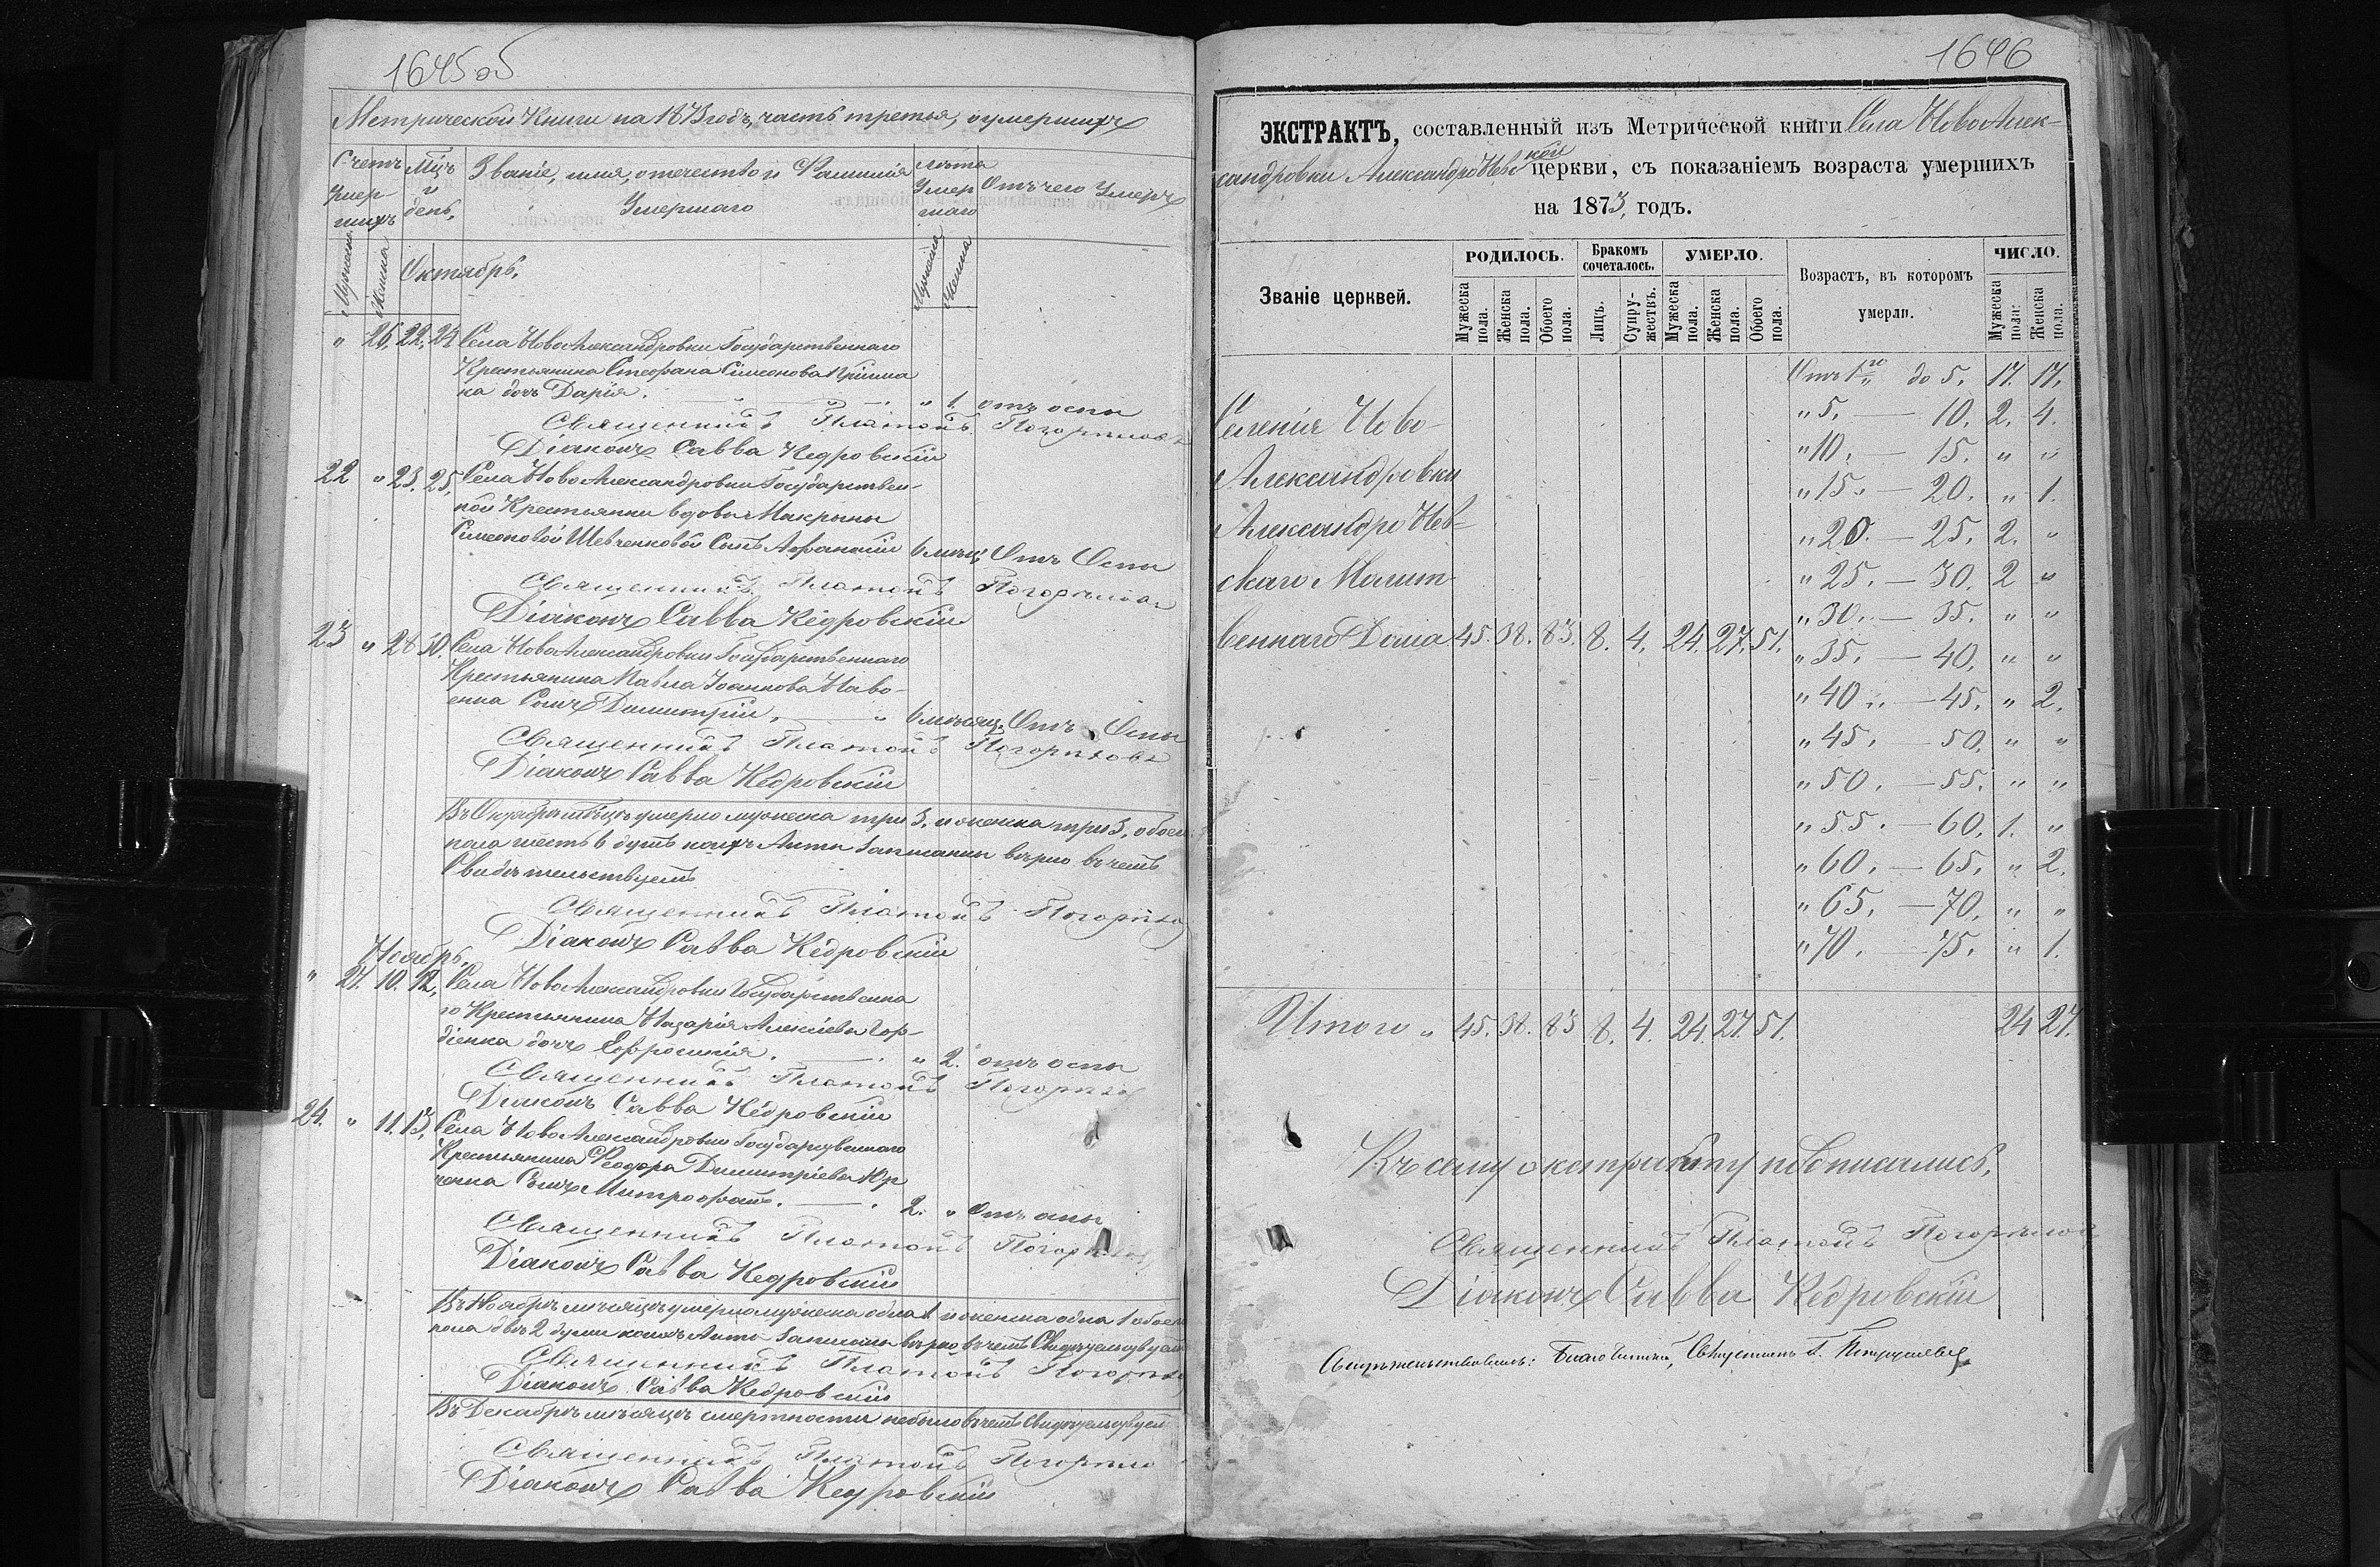 1645об
Метрической Книги на 1873 годъ, часть третья, о умершихъ
Счетъ умершихъ
Мужеска
Женска
Мцъ и день.
Званіе, имя, отечество и Фамилія Умершаго
Лѣта Умершаго
Мужеска
Женска
Отъ чего Умеръ
Октябрь.
" 26. 22. 24 Села НовоАлександровки Государственнаго
Крестьянина Стефана Симеонова
ка дочь Дарія. " 1. отъ оспы
Священникъ Платонъ Погорѣловъ
Діаконъ Савва Кедровскій
22 " 23. 25. Села НовоАлександровки Государствен-
ной Крестьянки вдовы Макрины
Симеоновой Шевченковой Сынъ Афанасій 6 мѣсяц. Отъ Оспы
Священникъ Платонъ Погорѣловъ
Діаконъ Савва Кедровскій
23 " 28 30. Села НовоАлександровки Государственнаго
Крестьянина Павла Іоаннова
енка Сынъ Димитрій. " 6 мѣсяц. Отъ Оспы
Священникъ Платонъ Погорѣловъ
Діаконъ Савва Кедровскій
Въ Октябрѣ мѣсяцѣ умерло мужеска три 3, и женска три 3, обоего
пола шесть 6 душъ коихъ Акты записаны вѣрно въ чемъ
Свидѣтельствуемъ
Священникъ Платонъ Погорѣло
Діаконъ Савва Кедровскій
Ноябрь.
" 27. 10. 12. Села НовоАлександровки Государственна
го Крестьянина Назарія Алексіева Гор-
діенка дочь Евфросинія. " 2. отъ оспы
Священникъ Платонъ Погорѣло
Діаконъ Савва Кедровскій
24. " 11. 13. Села НовоАлександровки Государственнаго
Крестьянина Ѳеодора Димитріева Юр
ченка Сынъ Митрофанъ. 2. " Отъ оспы
Священникъ Платонъ Погорѣлов
Діаконъ Савва Кедровскій
Въ Ноябрѣ мѣсяцѣ умерло мужеска одна 1 и женска одна 1 обоего
пола двѣ 2 души коихъ Акты записаны вѣрно въ чемъ Свидѣтельствуемъ
Священникъ Платонъ Погорѣло
Діаконъ Савва Кедровскій
Въ Декабрѣ мѣсяцѣ смертности небыло въ чемъ Свидѣтельствуем
Священникъ Платонъ Погорѣло
Діаконъ Савва Кедровскій
1646
ЭКСТРАКТЪ, составленный изъ Метрической книги Села НовоАлек-
сандровки АлександроНевской церкви, съ показаніемъ возраста умершихъ
на 1873, годъ.
Званіе церквей.
РОДИЛОСЬ.
Мужеска пола.
Женска пола.
Обоего пола.
Бракомъ сочеталось.
Лицъ.
Супружествъ.
УМЕРЛО.
Мужеска пола.
Женска пола.
Обоего пола.
Возрастъ, въ которомъ умерли.
ЧИСЛО.
Мужеска пола:
Женска пола.
Отъ 1го до 5. 17. 17.
Селенія Ново-
" 5. — 10. 2. 4.
" 10. — 15. " "
Александровки
" 15. — 20. " 1.
АлександроНев-
" 20. — 25. 2. "
скаго Молит-
" 25. — 30. 2 "
" 30. — 35. " "
веннаго Дома 45. 38. 83. 8. 4. 24. 27. 51.
" 35. — 40. " "
" 40. — 45. " 2.
" 45. — 50. " "
" 50. — 55. " "
" 55. — 60. 1. "
" 60. — 65. " 2.
" 65. — 70. " "
" 70. — 75. " 1.
Итого " 45. 38. 83 8. 4. 24. 27. 51. 24 27.
Къ сему экстракту подписались,
Священникъ Платонъ Погорѣлов
Діаконъ Савва Кедровскій
Свидѣтельствовалъ: Благочинный, Священникъ